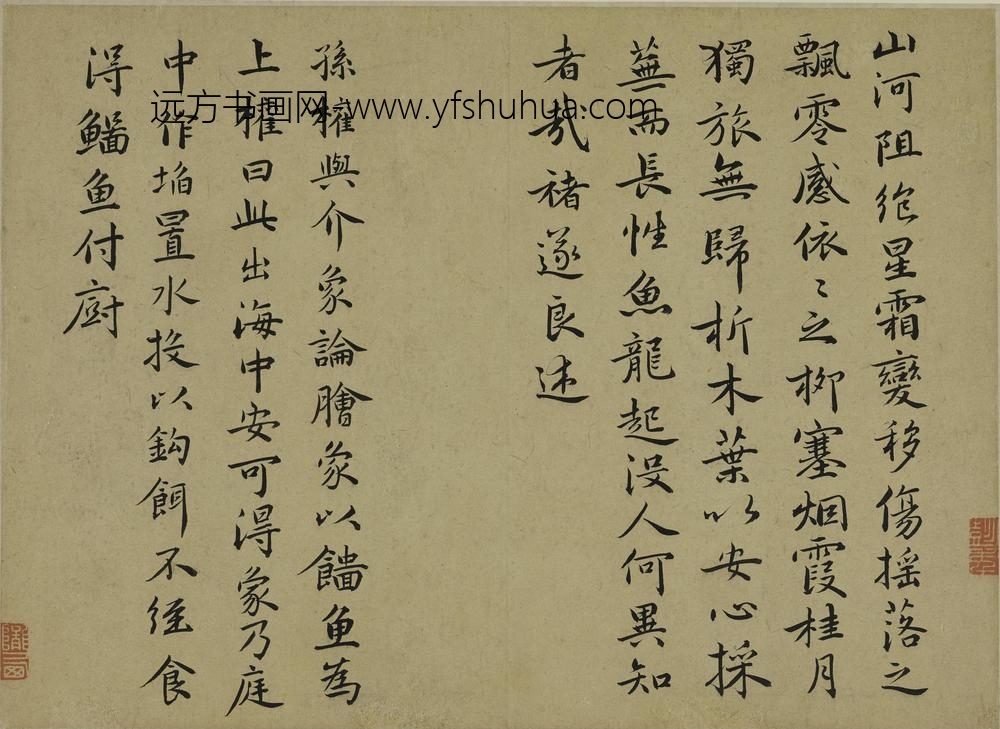 山河阻絶星霜變移傷摇落之
飄零感依〻之柳塞烟霞桂月
獨旅無歸折木葉以安心採
蕪而長性魚龍起没人何異知
者哉褚遂良述
孫權與介象論膾象以鯔魚為
上權曰此出海中安可得象乃庭
中作埳置水投以鈎餌不經食
得鯔魚付廚
远方书画网 www.yfshuhua.com